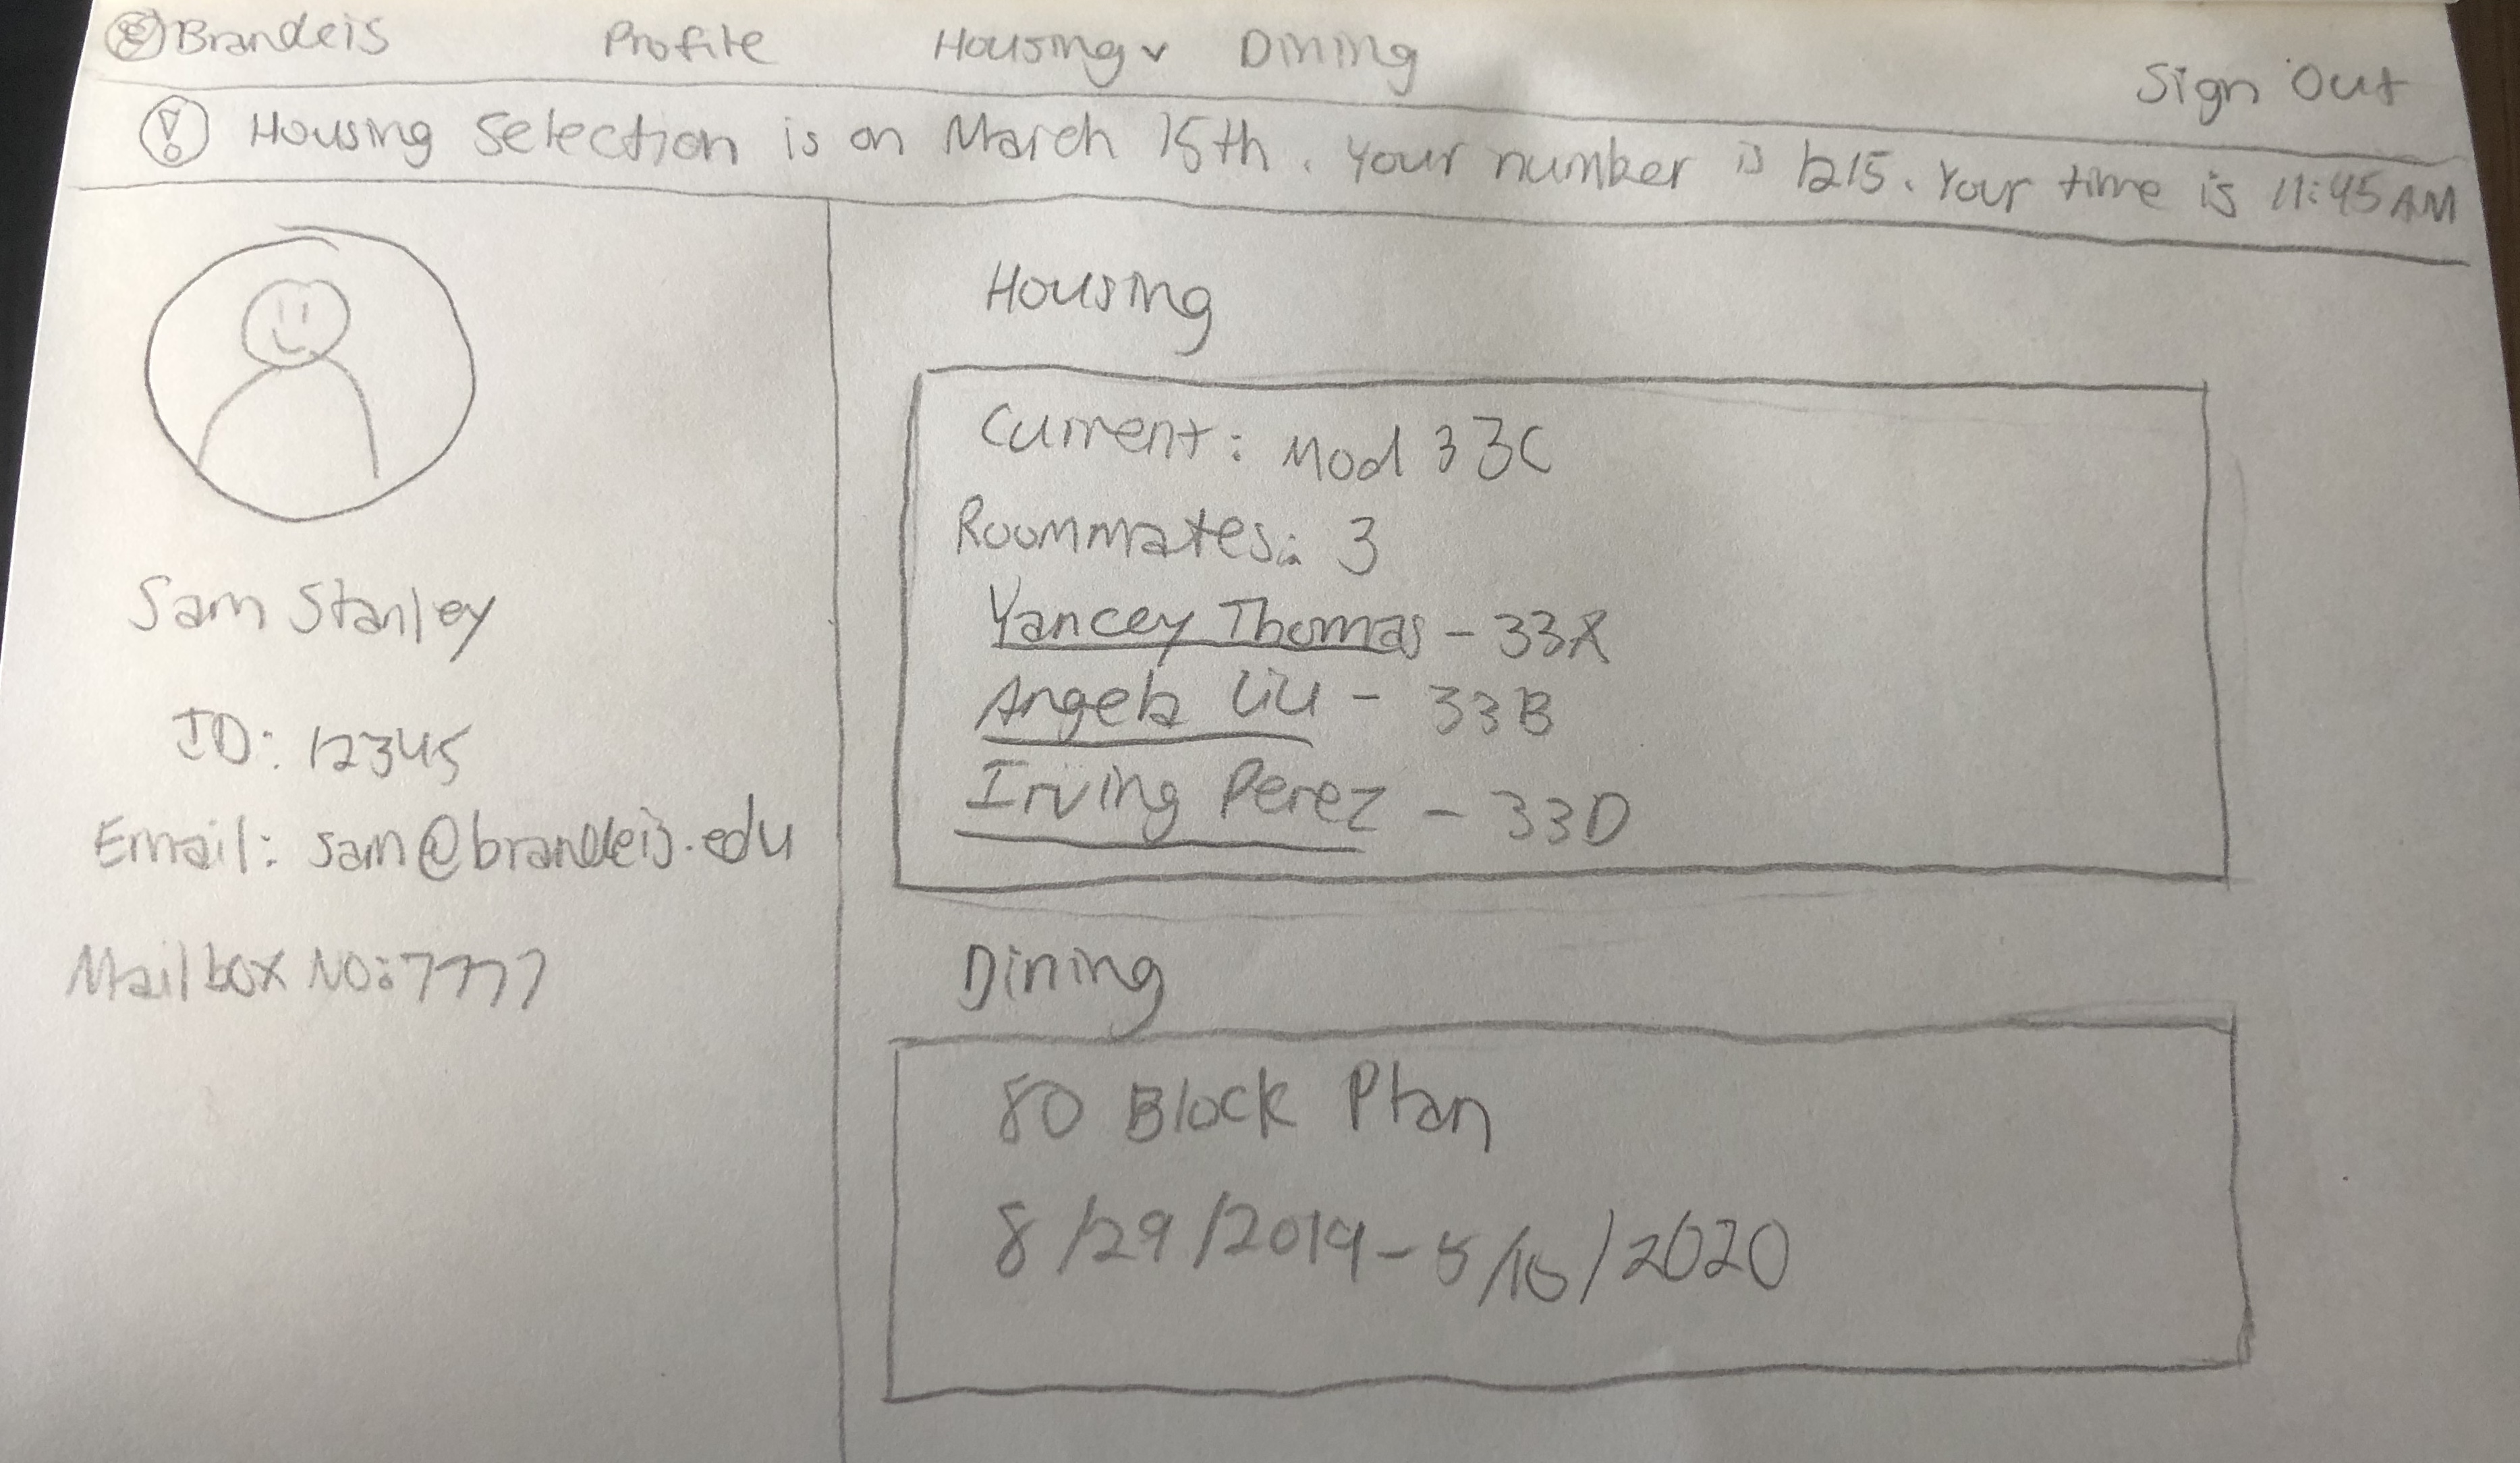 Brandeis Profile Housing Dining Sign Out
! Housing Selection is on March 15th. Your number is 1215. Your time is 11:45 AM
Sam Stanley
ID: 12345
Email: sam@brandeis.edu
Mailbox No: 7777
Housing
Current: Mod 33C
Roommates: 3
Yancey Thomas - 33A
Angela Liu - 33B
Irving Perez - 33D
Dining
80 Block Plan
8/29/2019 - 5/15/2020